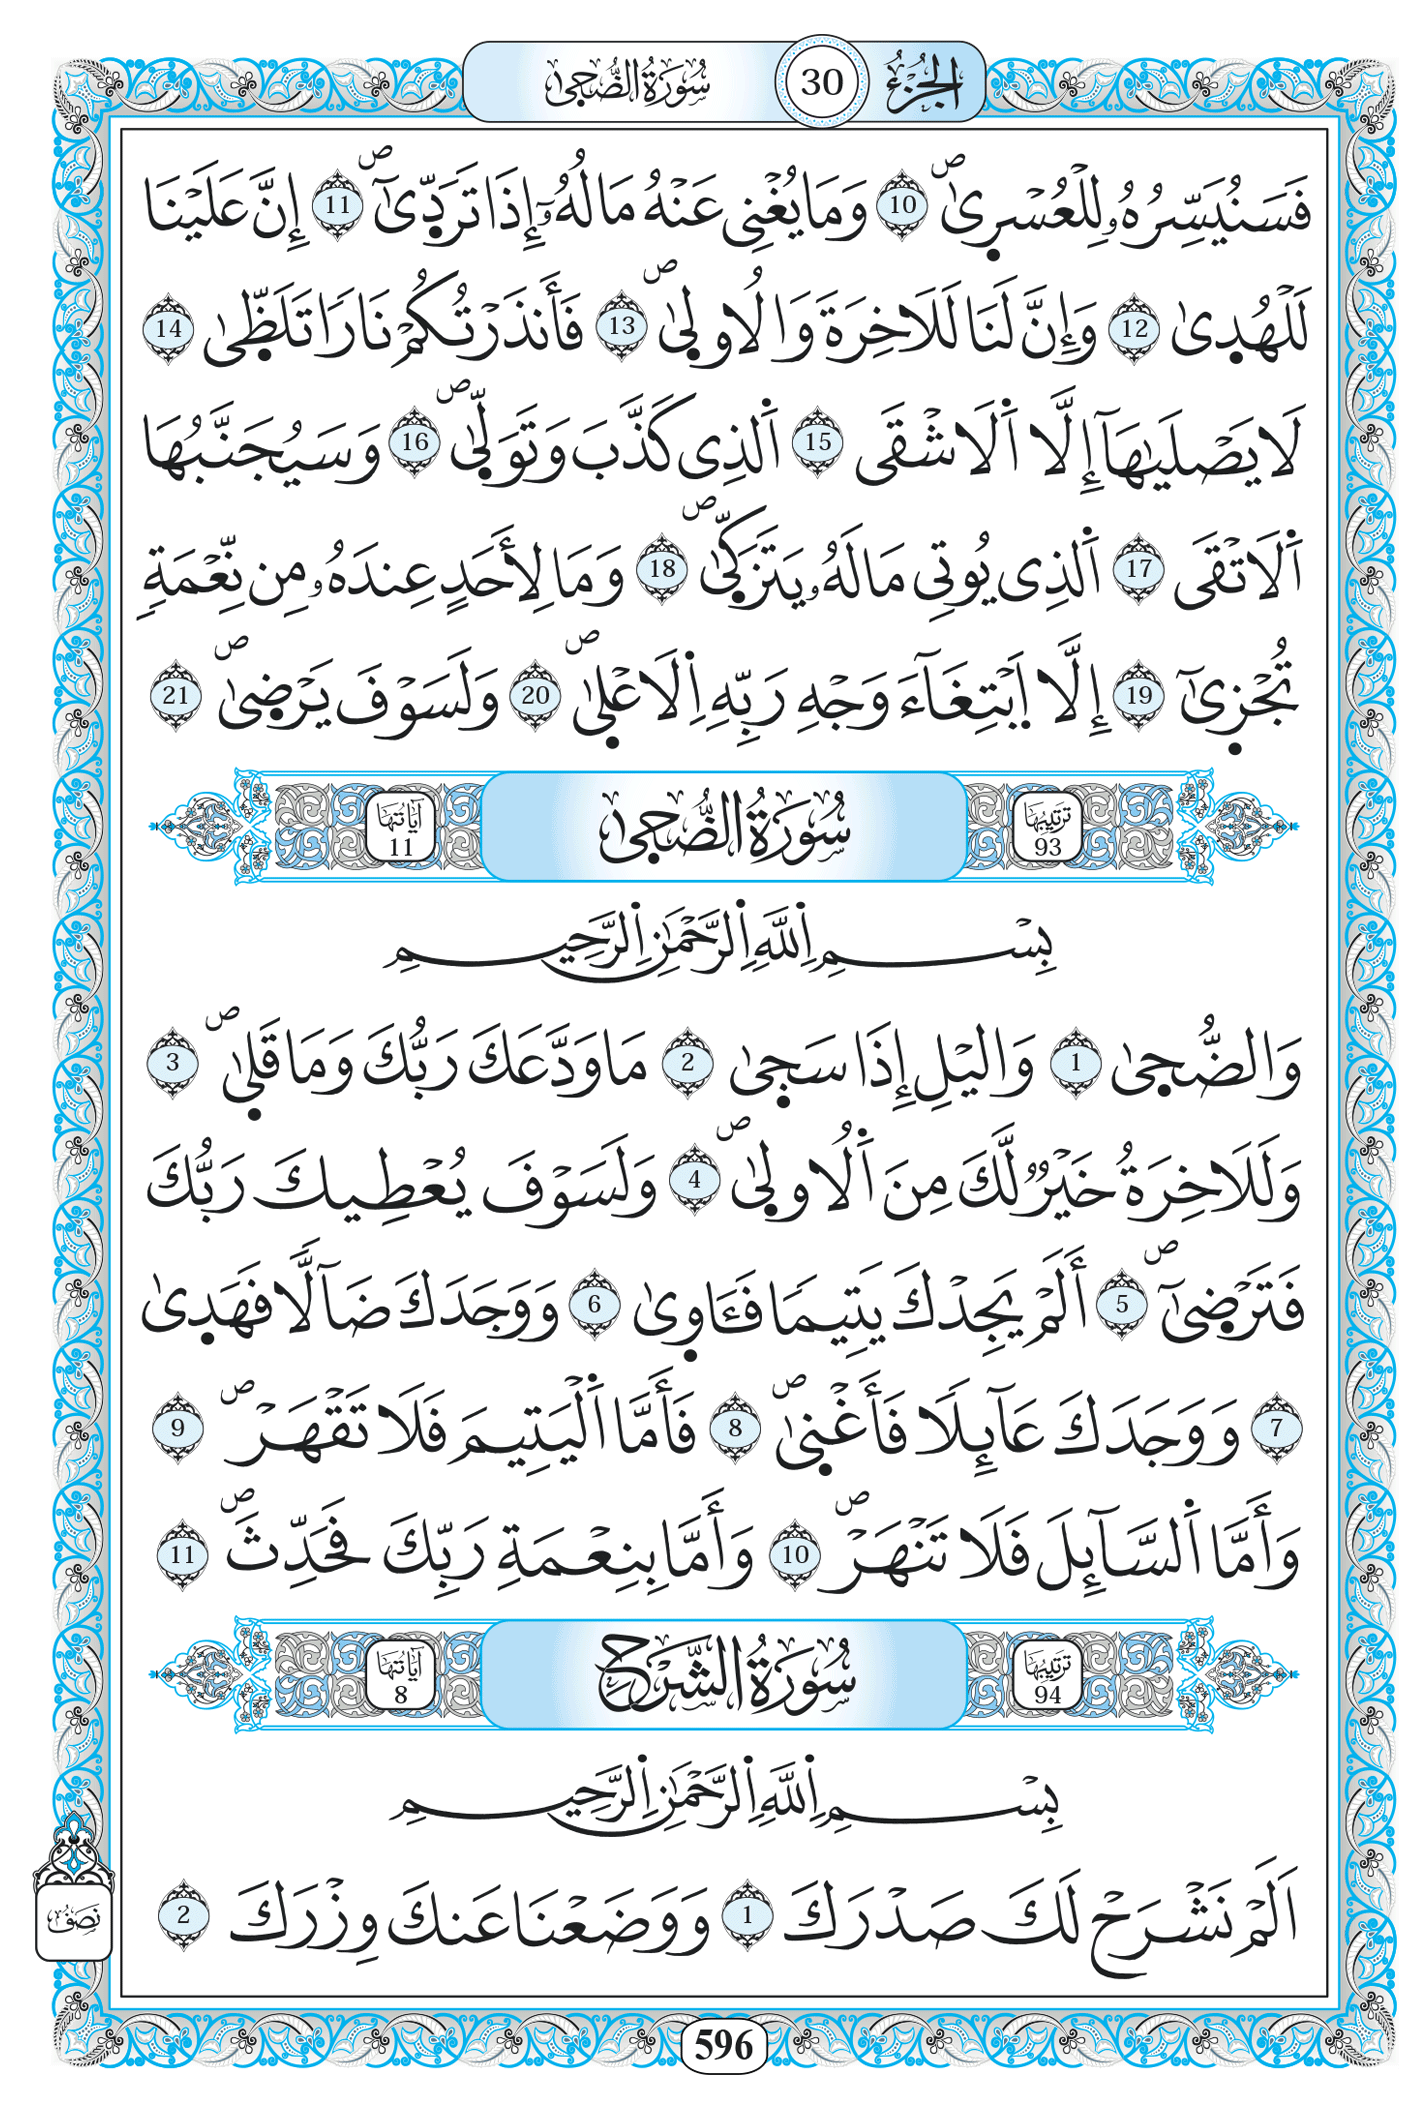 الجزء 30 سورة الضحى
فَسَنُيَسِّرُهُۥ لِلْعُسْر۪ىٰ ص 10 وَمَا يُغْنِى عَنْهُ مَالُهُۥٓ إِذَا تَرَدّ۪ىٰٓ ص 11 إِنَّ عَلَيْنَا
لَلْهُد۪ىٰ 12 وَإِنَّ لَنَا لَلَاخِرَةَ وَالُاول۪ىٰ ص 13 فَأَنذَرْتُكُمْ نَارَاً تَلَظّ۪ىٰ 14
لَا يَصْلَيٰهَآ إِلَّا اَ۬لَاشْقَى 15 اَ۬لذِى كَذَّبَ وَتَوَلّ۪ىٰ ص 16 وَسَيُجَنَّبُهَا
اَ۬لَاتْقَى 17 اَ۬لذِى يُوتِى مَالَهُۥ يَتَزَكّ۪ىٰ ص 18 وَمَا لِأَحَدٍ عِندَهُۥ مِن نِّعْمَةٍ
تُجْز۪ىٰٓ 19 إِلَّا اَ۪بْتِغَآءَ وَجْهِ رَبِّهِ اِ۬لَاعْل۪ىٰ ص 20 وَلَسَوْفَ يَرْض۪ىٰ ص 21
ترتيبها 93 سورة الضحى آياتها 11
بِسْمِ اِ۬للَّهِ اِ۬لرَّحْمَٰنِ اِ۬لرَّحِيمِ
وَالضُّح۪ىٰ 1 وَاليْلِ إِذَا سَج۪ىٰ 2 مَا وَدَّعَكَ رَبُّكَ وَمَا قَل۪ىٰ ص 3
وَلَلَاخِرَةُ خَيْرٌ لَّكَ مِنَ اَ۬لُاول۪ىٰ ص 4 وَلَسَوْفَ يُعْطِيكَ رَبُّكَ
فَتَرْض۪ىٰٓ ص 5 أَلَمْ يَجِدْكَ يَتِيماً فَـَٔاو۪ىٰ 6 وَوَجَدَكَ ضَآلّاً فَهَد۪ىٰ
7 وَوَجَدَكَ عَآئِلاً فَأَغْن۪ىٰ ص 8 فَأَمَّا اَ۬لْيَتِيمَ فَلَا تَقْهَرْ ص 9
وَأَمَّا اَ۬لسَّآئِلَ فَلَا تَنْهَرْ ص 10 وَأَمَّا بِنِعْمَةِ رَبِّكَ فَحَدِّثْ ص 11
ترتيبها 94 سورة الشرح آياتها 8
بِسْمِ اِ۬للَّهِ اِ۬لرَّحْمَٰنِ اِ۬لرَّحِيمِ
اَلَمْ نَشْرَحْ لَكَ صَدْرَكَ 1 وَوَضَعْنَا عَنكَ وِزْرَكَ 2
نصف
596